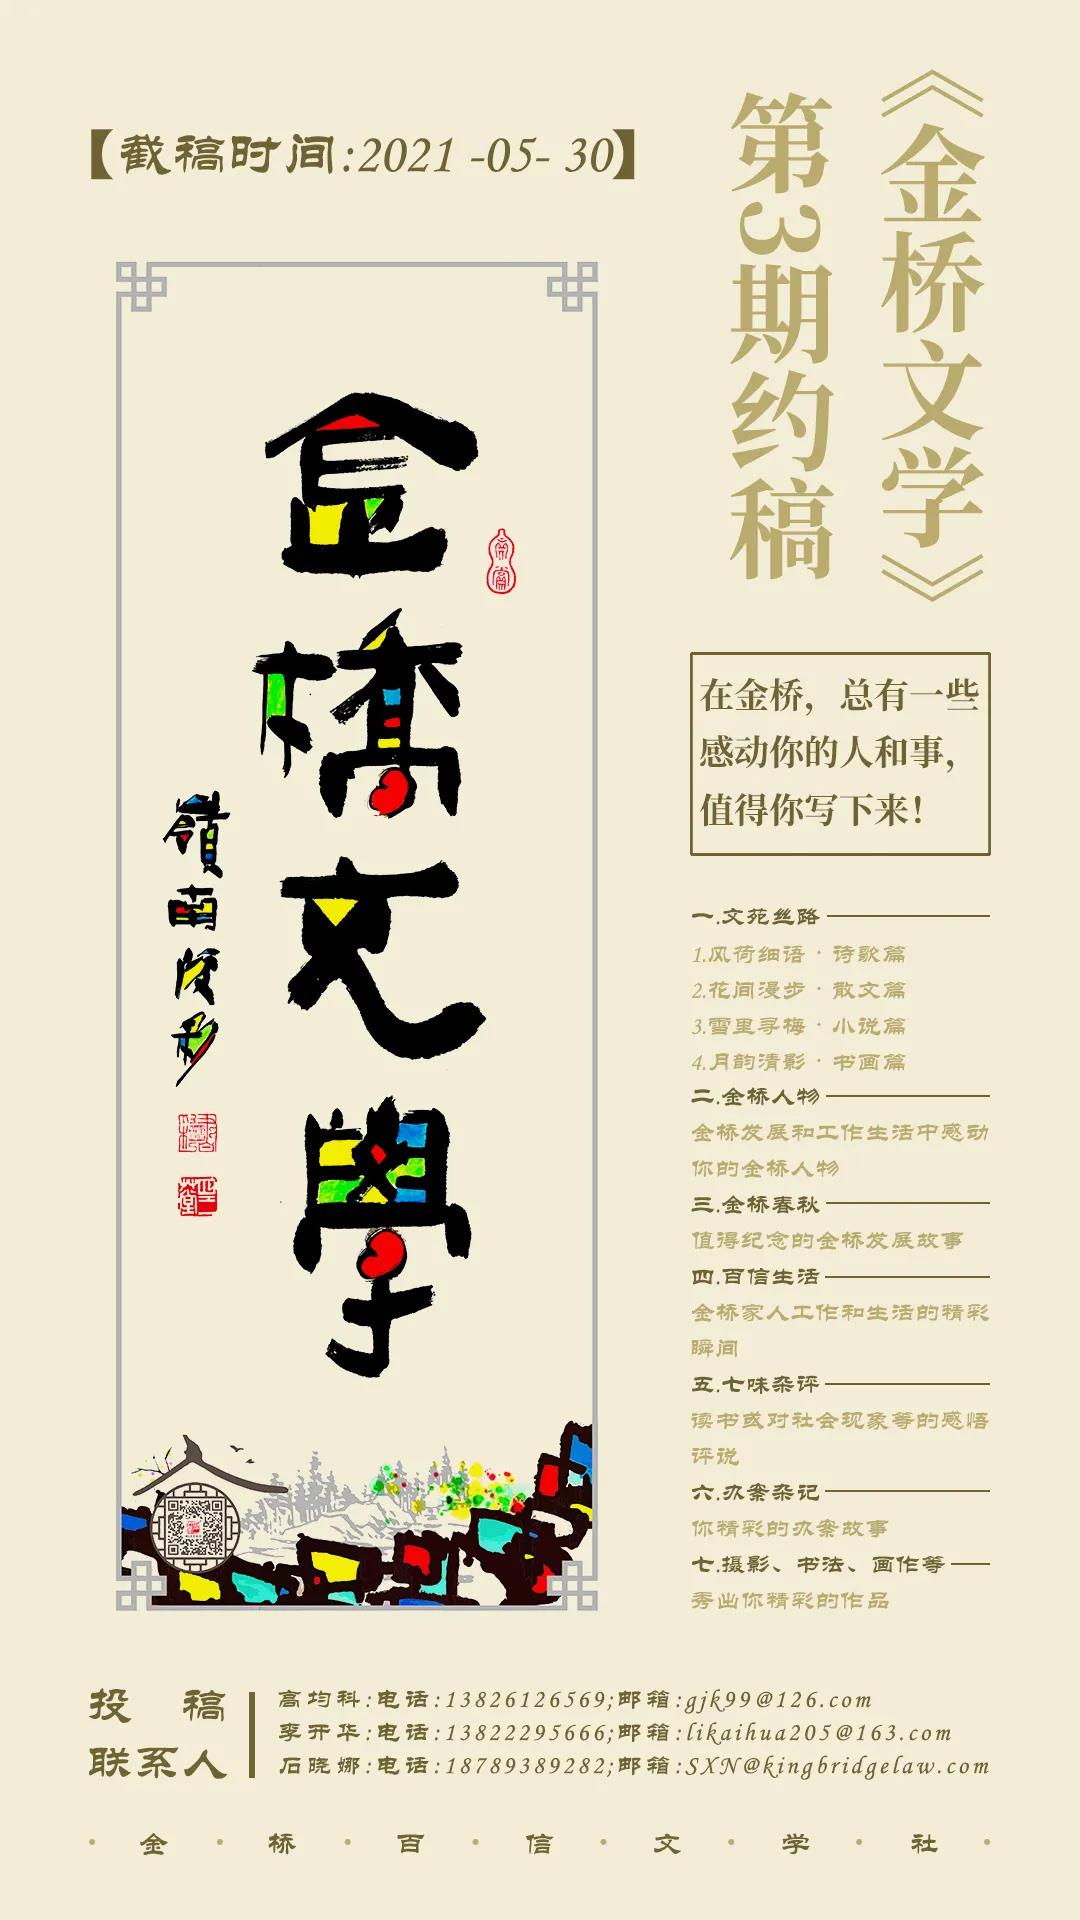 《金桥文学》
第3期约稿
【截稿时间:2021-05-30】
金橋文學
嶺南後彩
在金桥，总有一些
感动你的人和事，
值得你写下来！
一.文苑丝路
1.风荷细语·诗歌篇
2.花间漫步·散文篇
3.雪里寻梅·小说篇
4.月韵清影·书画篇
二.金桥人物
金桥发展和工作生活中感动
你的金桥人物
三.金桥春秋
值得纪念的金桥发展故事
四.百信生活
金桥家人工作和生活的精彩
瞬间
五.七味杂评
读书或对社会现象等的感悟
评说
六.办案杂记
你精彩的办案故事
七.摄影、书法、画作等
秀出你精彩的作品
投稿
联系人
高均科:电话:13826126569;邮箱:gjk99@126.com
李开华:电话:13822295666;邮箱:likaihua205@163.com
石晓娜:电话:18789389282;邮箱:SXN@kingbridgelaw.com
·金·桥·百·信·文·学·社·